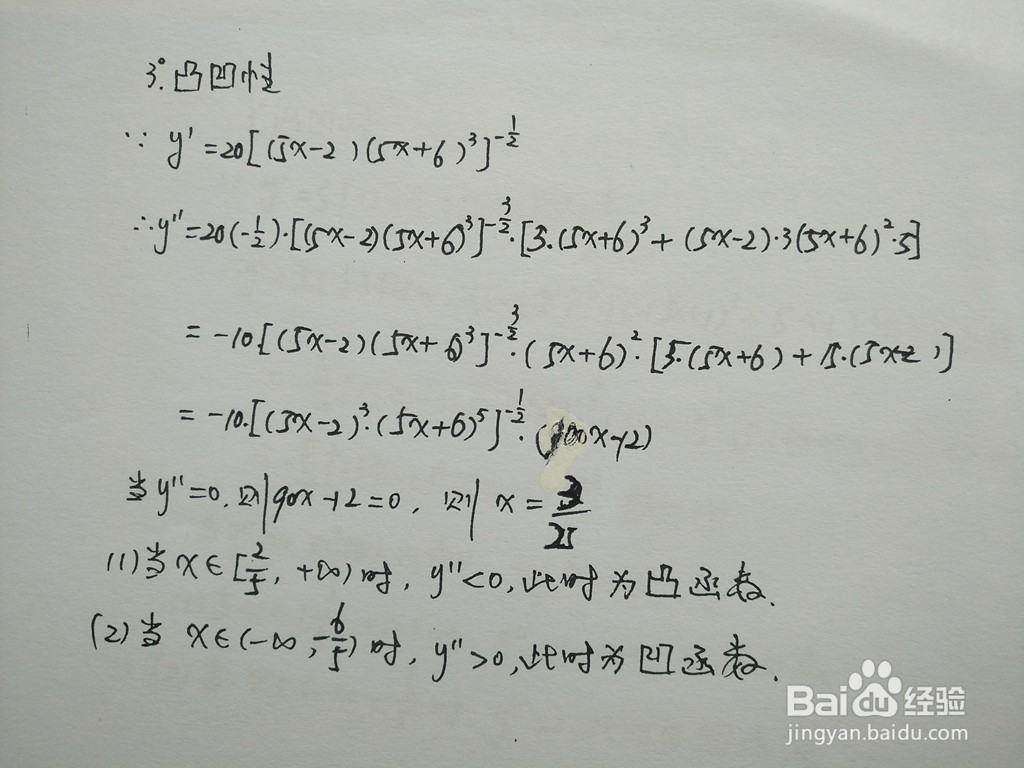 3°.凸凹性
∵ y'=20[(5x-2)(5x+6)³]^{-1/2}
∴y''=20(-1/2)·[(5x-2)(5x+6)³]^{-3/2}·[5·(5x+6)³+(5x-2)·3(5x+6)²·5]
=-10·[(5x-2)(5x+6)³]^{-3/2}·(5x+6)²·[5·(5x+6)+15·(5x-2)]
=-10·[(5x-2)³·(5x+6)⁵]^{-1/2}·(100x-12)
当y''=0,则90x-12=0,则 x=3/25
(1)当x∈[2/5,+∞)时,y''<0,此时为凸函数.
(2)当 x∈(-∞,-6/5)时,y''>0,此时为凹函数.
Baidu经验
jingyan.baidu.com